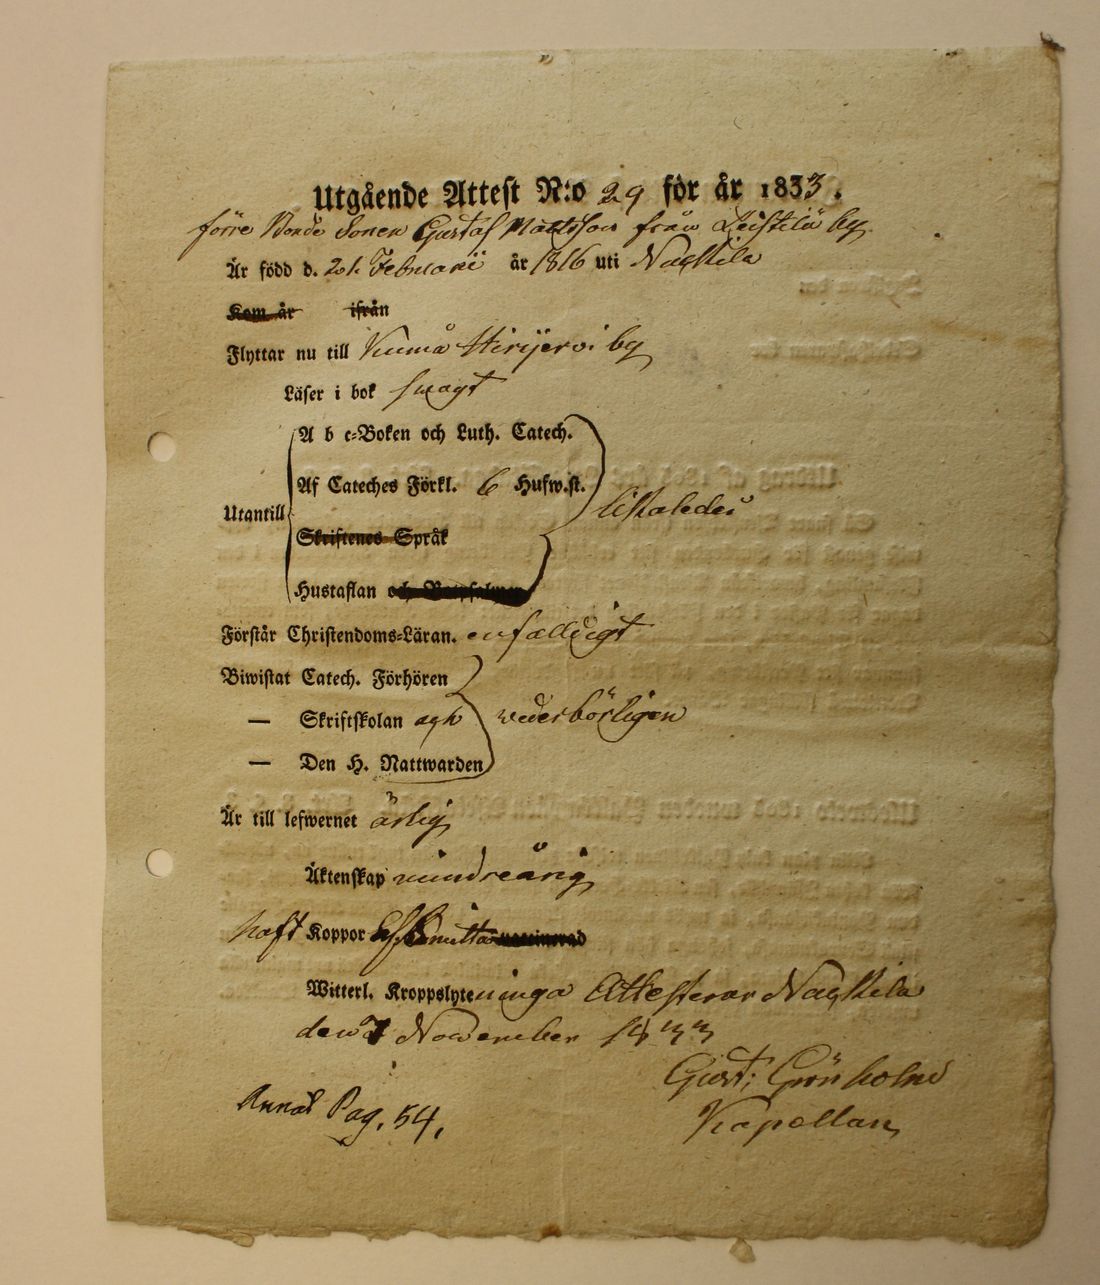 Utgående Attest N:o 29 för år 1833.
förre Bonde Sonen Gustaf Mattsson från Leistilä by
Är född d. 21 Februari år 1816 uti Nackila
Kom år ifrån
Flyttar nu till Kumå Hirijervi by
Läser i bok swagt
A b c-Boken och Luth. Catech.
Af Cateches Förkl. 6 Hufw.st.
Utantill likaledes
Skriftenes Språk
Hustaflan och
Förstår Christendoms-Läran. enfalldigt
Biwistat Catech. Förhören
— Skriftskolan och wederbörligen
— Den H. Nattwarden
Är till lefwernet ärlig
Äktenskap minderårig
haft Koppor
Witterl. Kroppslyte inga Attesterar Nackila
den 7 November 1833
Gust: Grönholm
Kapellan
Pag. 54.